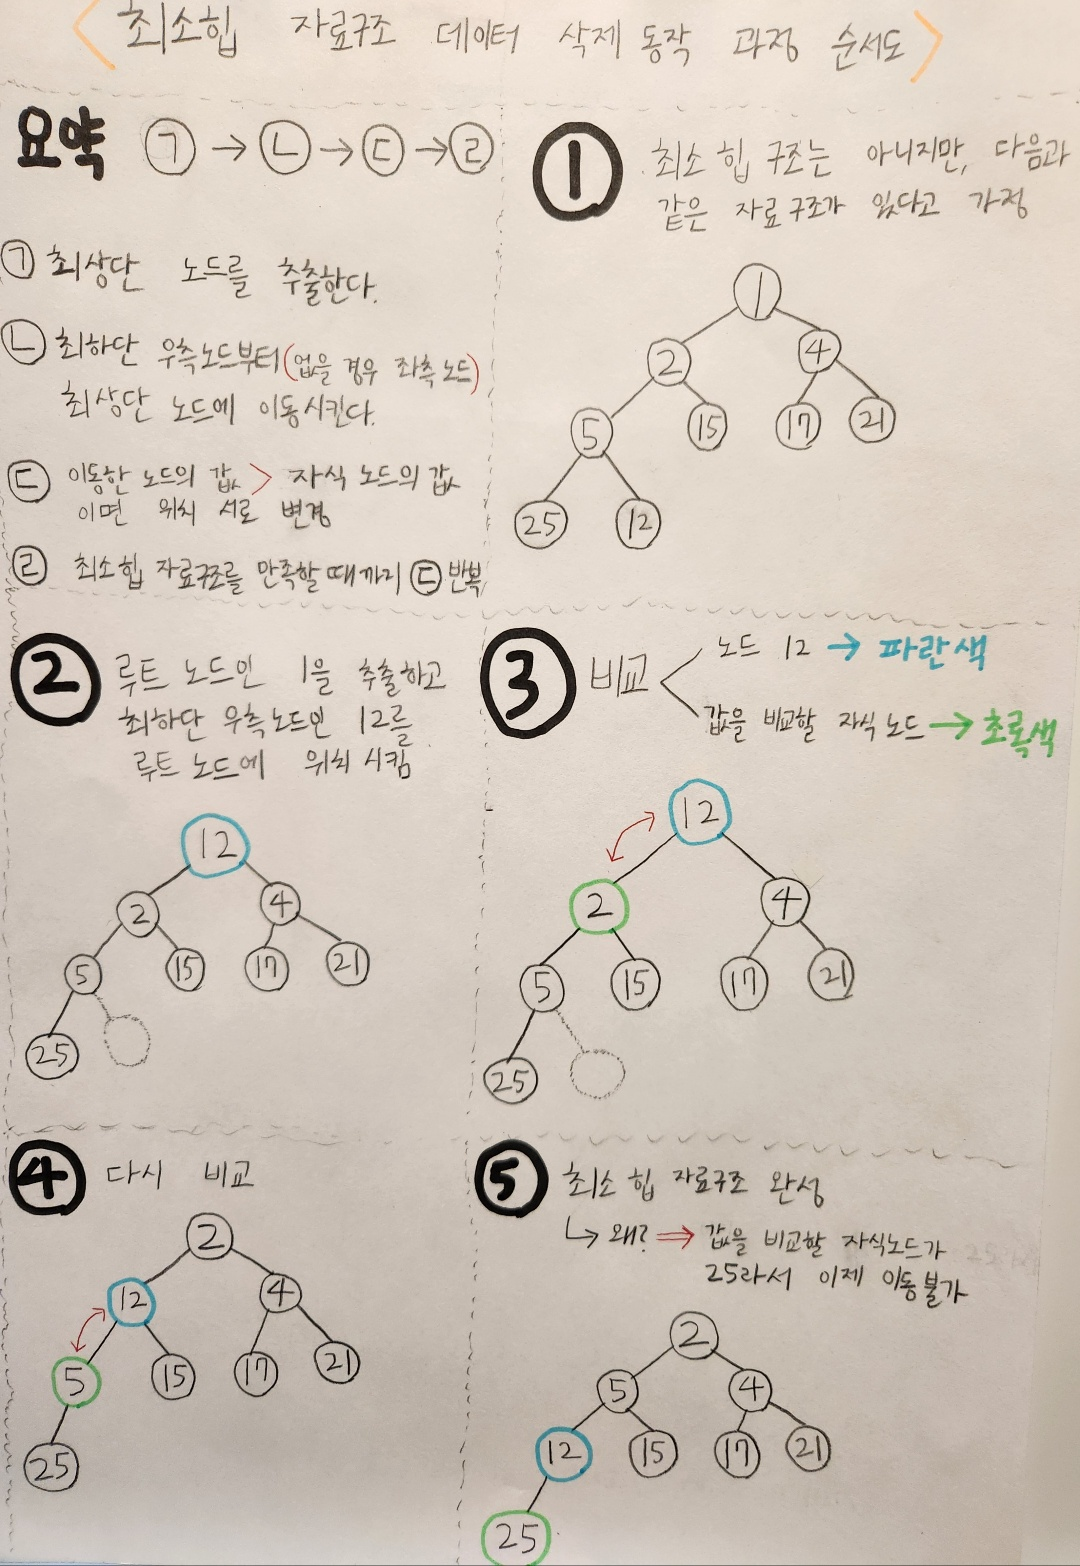 <최소힙 자료구조 데이터 삭제 동작 과정 순서도>
요약 ㄱ → ㄴ → ㄷ → ㄹ
ㄱ 최상단 노드를 추출한다.
ㄴ 최하단 우측노드부터(없을 경우 좌측 노드)
최상단 노드에 이동시킨다.
ㄷ 이동한 노드의 값 > 자식 노드의 값
이면 위치 서로 변경
ㄹ 최소힙 자료구조를 만족할때까지 ㄷ 반복
1 최소 힙 구조는 아니지만, 다음과
같은 자료구조가 있다고 가정
1
2 4
5 15 17 21
25 12
2 루트 노드인 1을 추출하고
최하단 우측노드인 12를
루트 노드에 위치 시킴
12
2 4
5 15 17 21
25
3 비교
노드 12 → 파란색
값을 비교할 자식 노드 → 초록색
12
2 4
5 15 17 21
25
4 다시 비교
2
12 4
5 15 17 21
25
5 최소 힙 자료구조 완성
↳ 왜? ⇒ 값을 비교할 자식노드가
25라서 이제 이동불가
2
5 4
12 15 17 21
25